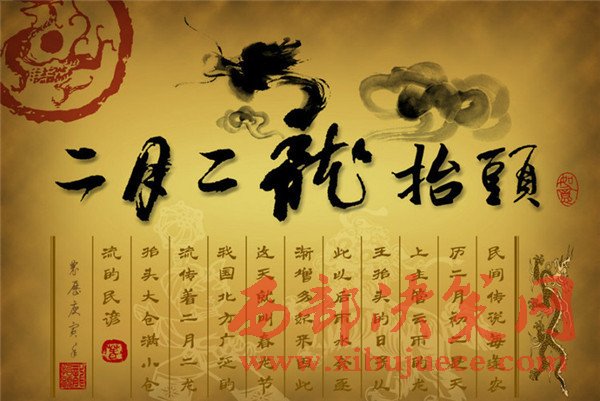 二月二龍抬頭
如意
民间传说每逢农
历二月初二是天
上主管云雨的龙
王抬头的日子从
此以后雨水会逐
渐增多起来因此
这天就叫春龙节
我国北方广泛的
流传着二月二龙
抬头大仓满小仓
流的民谚
农历庚寅年
西部决策网
www.xibujuece.com